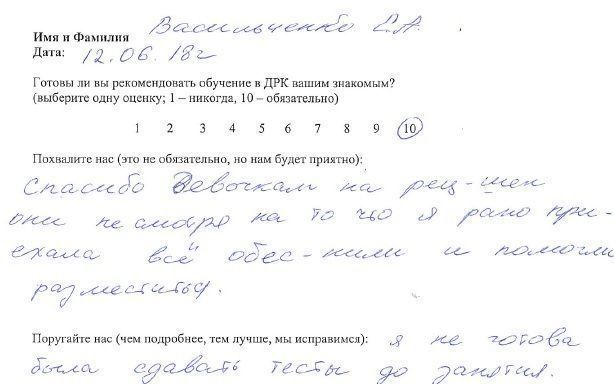 Имя и Фамилия Васильченко Е.А.
Дата: 12.06.18г
Готовы ли вы рекомендовать обучение в ДРК вашим знакомым?
(выберите одну оценку; 1 – никогда, 10 – обязательно)
1 2 3 4 5 6 7 8 9 10
Похвалите нас (это не обязательно, но нам будет приятно):
Спасибо Девочкам на рец-шен
они не смотря на то что я рано при-
ехала всё обес-нили и помогли
разместиться.
Поругайте нас (чем подробнее, тем лучше, мы исправимся): я не готова
была сдавать тесты до занятия.